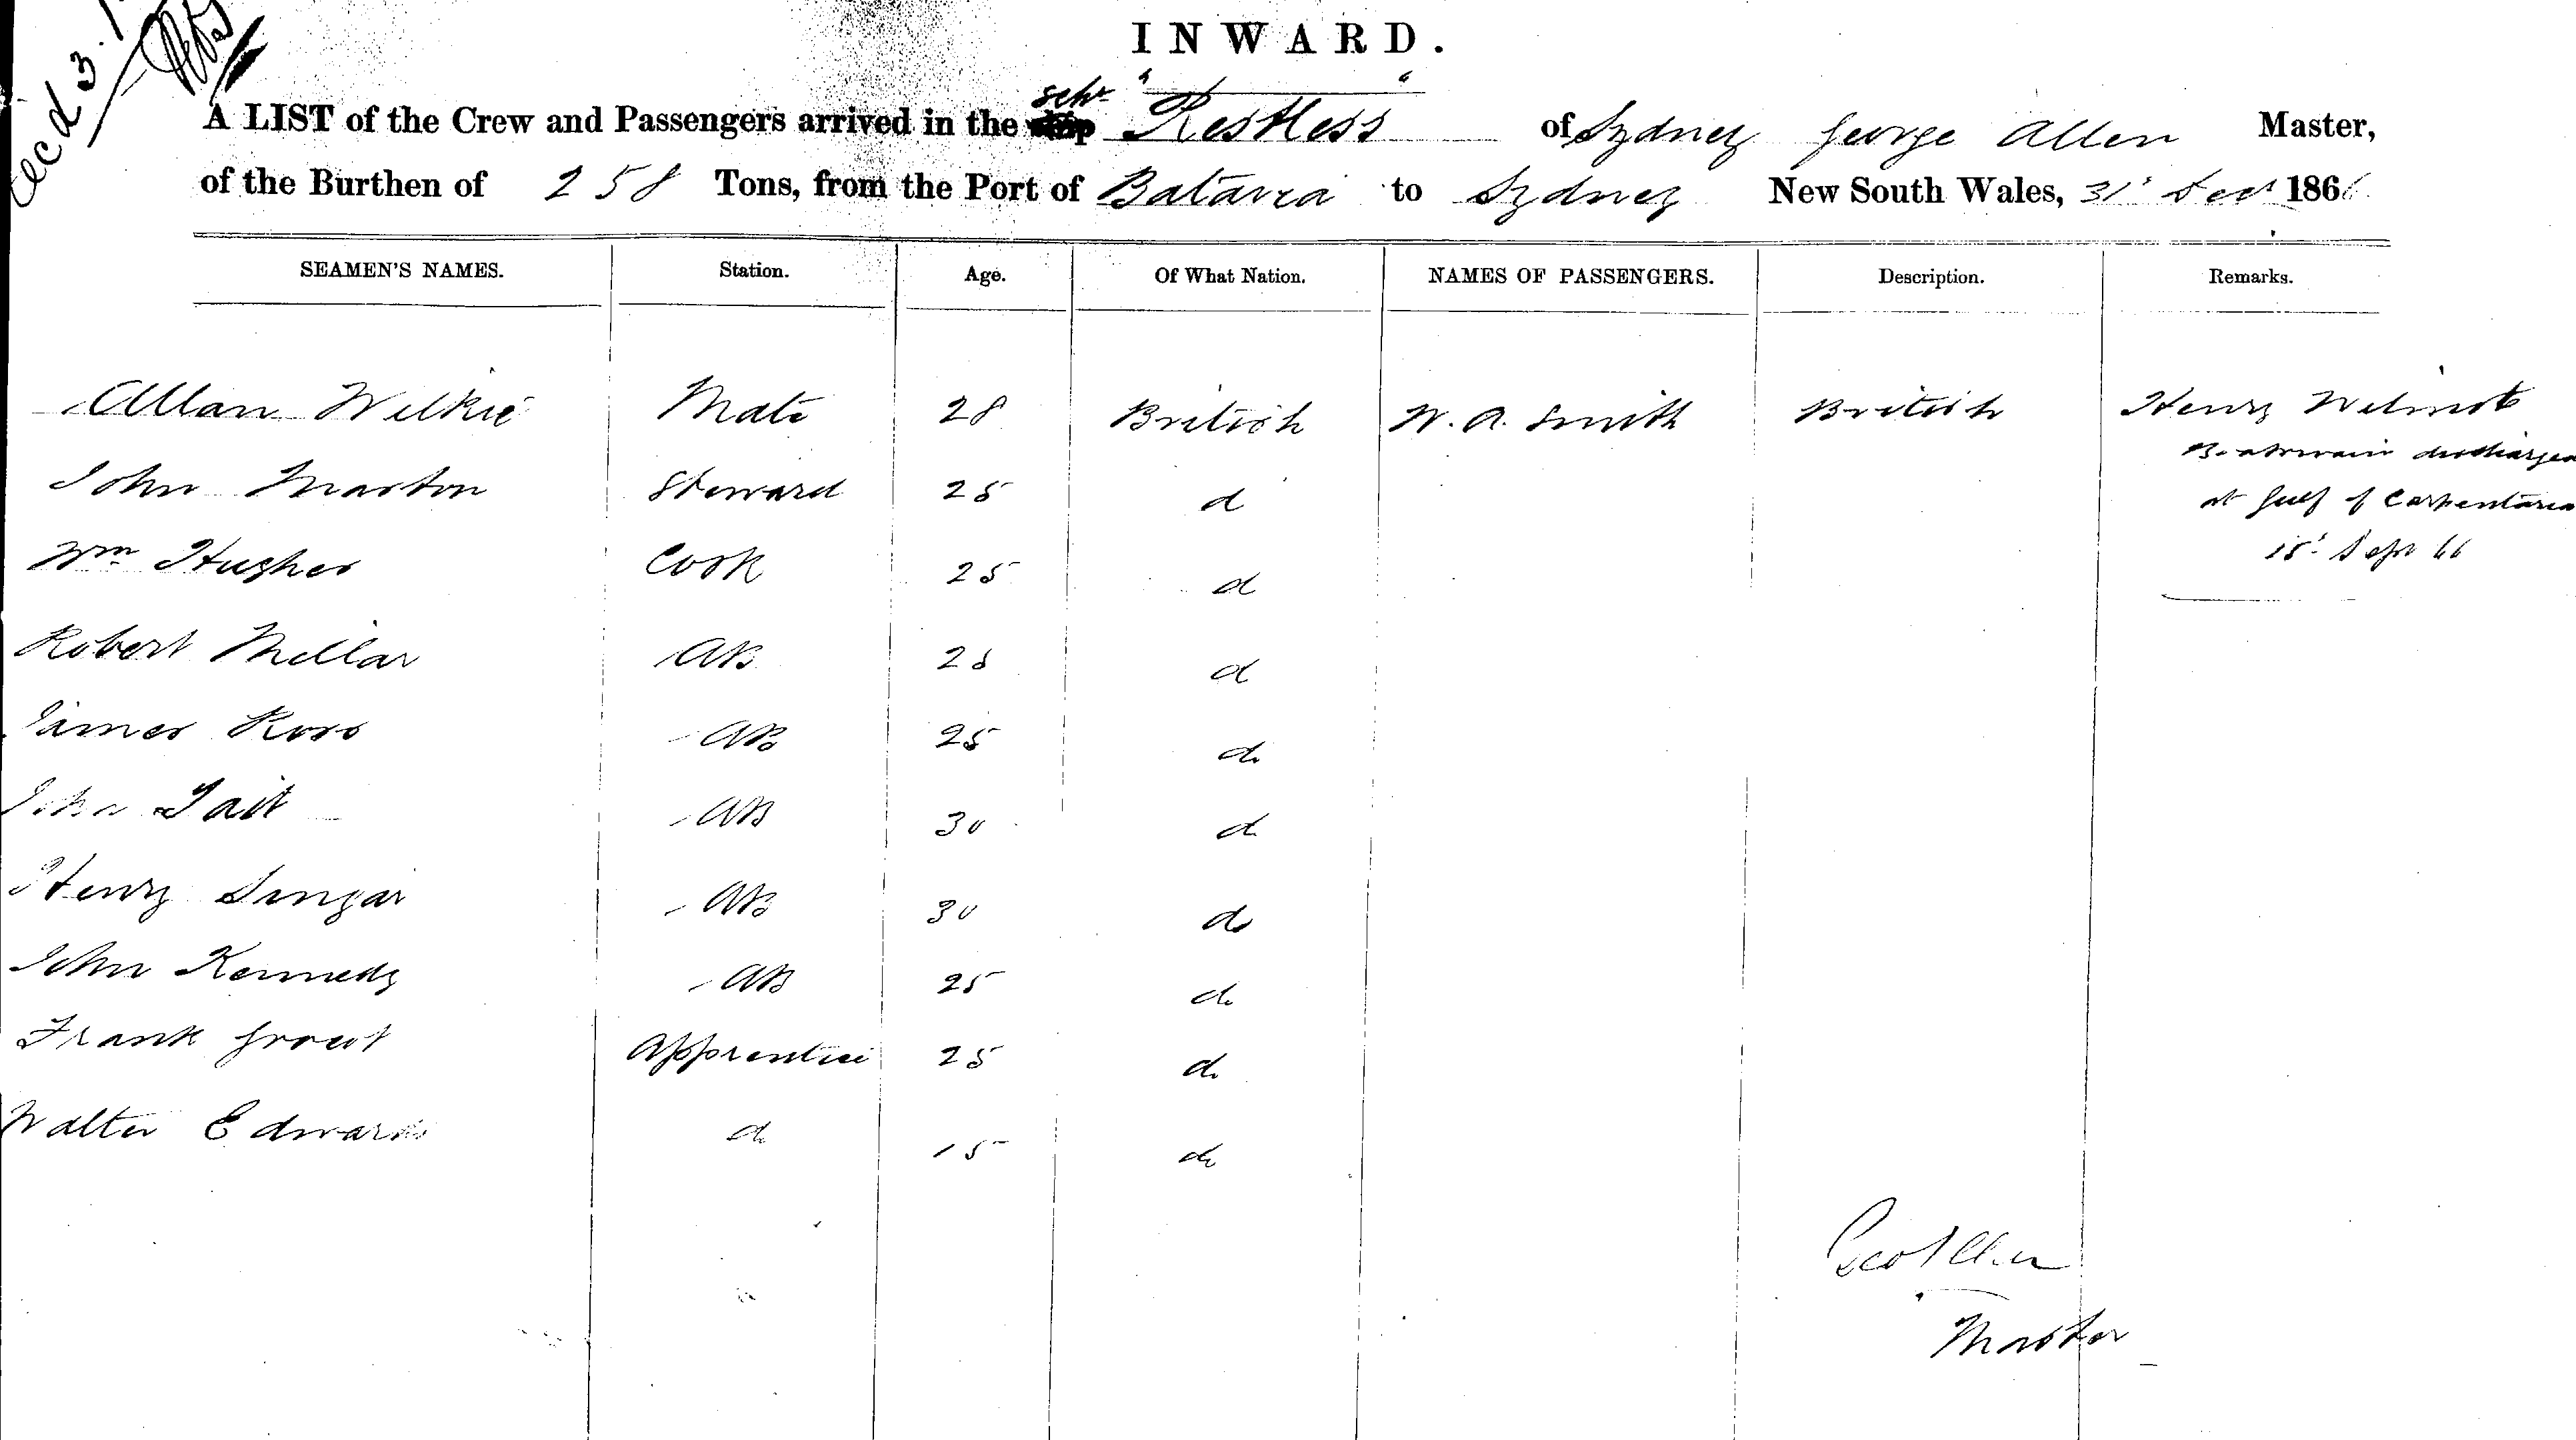 INWARD.
A LIST of the Crew and Passengers arrived in the schr "Restless" of Sydney George Allen Master,
of the Burthen of 258 Tons, from the Port of Batavia to Sydney New South Wales, 31st Decr 1866
SEAMEN'S NAMES. Station. Age. Of What Nation. NAMES OF PASSENGERS. Description. Remarks.
Allan Wilkie Mate 28 British W. A. Smith British Henry Wilmot
Boatswain discharged
John Marton Steward 25 do
at Gulf of Carpentaria
Wm Hughes Cook 25 do
15t Sept 66
Robert Millar AB 28 do
James Ross AB 25 do
John Tait AB 30 do
Henry Singar AB 30 do
John Kennedy AB 25 do
Frank Grout Apprentice 25 do
Walter Edwards do 15 do
Geo Allen
Master